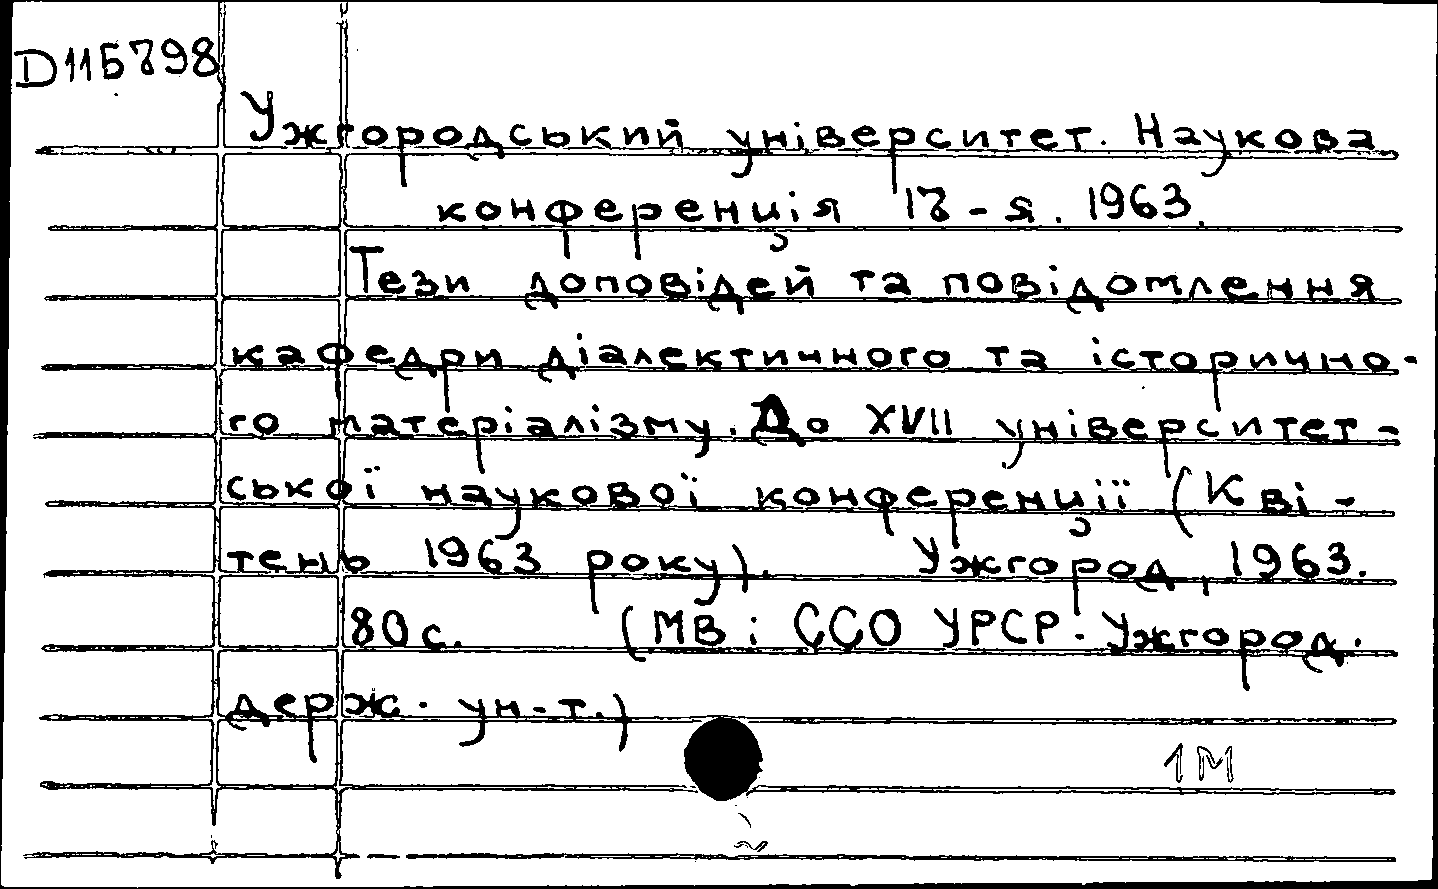 D115798
Ужгородський університет. Наукова
конференція 17-я. 1963.
Тези доповідей та повідомлення
кафедри діалектичного та історично-
го матеріалізму. До XVII університет-
ської наукової конференції (Кві-
тень 1963 року). Ужгород, 1963.
80 с. (МВ і ССО УРСР. Ужгород.
держ. ун-т.)
1М